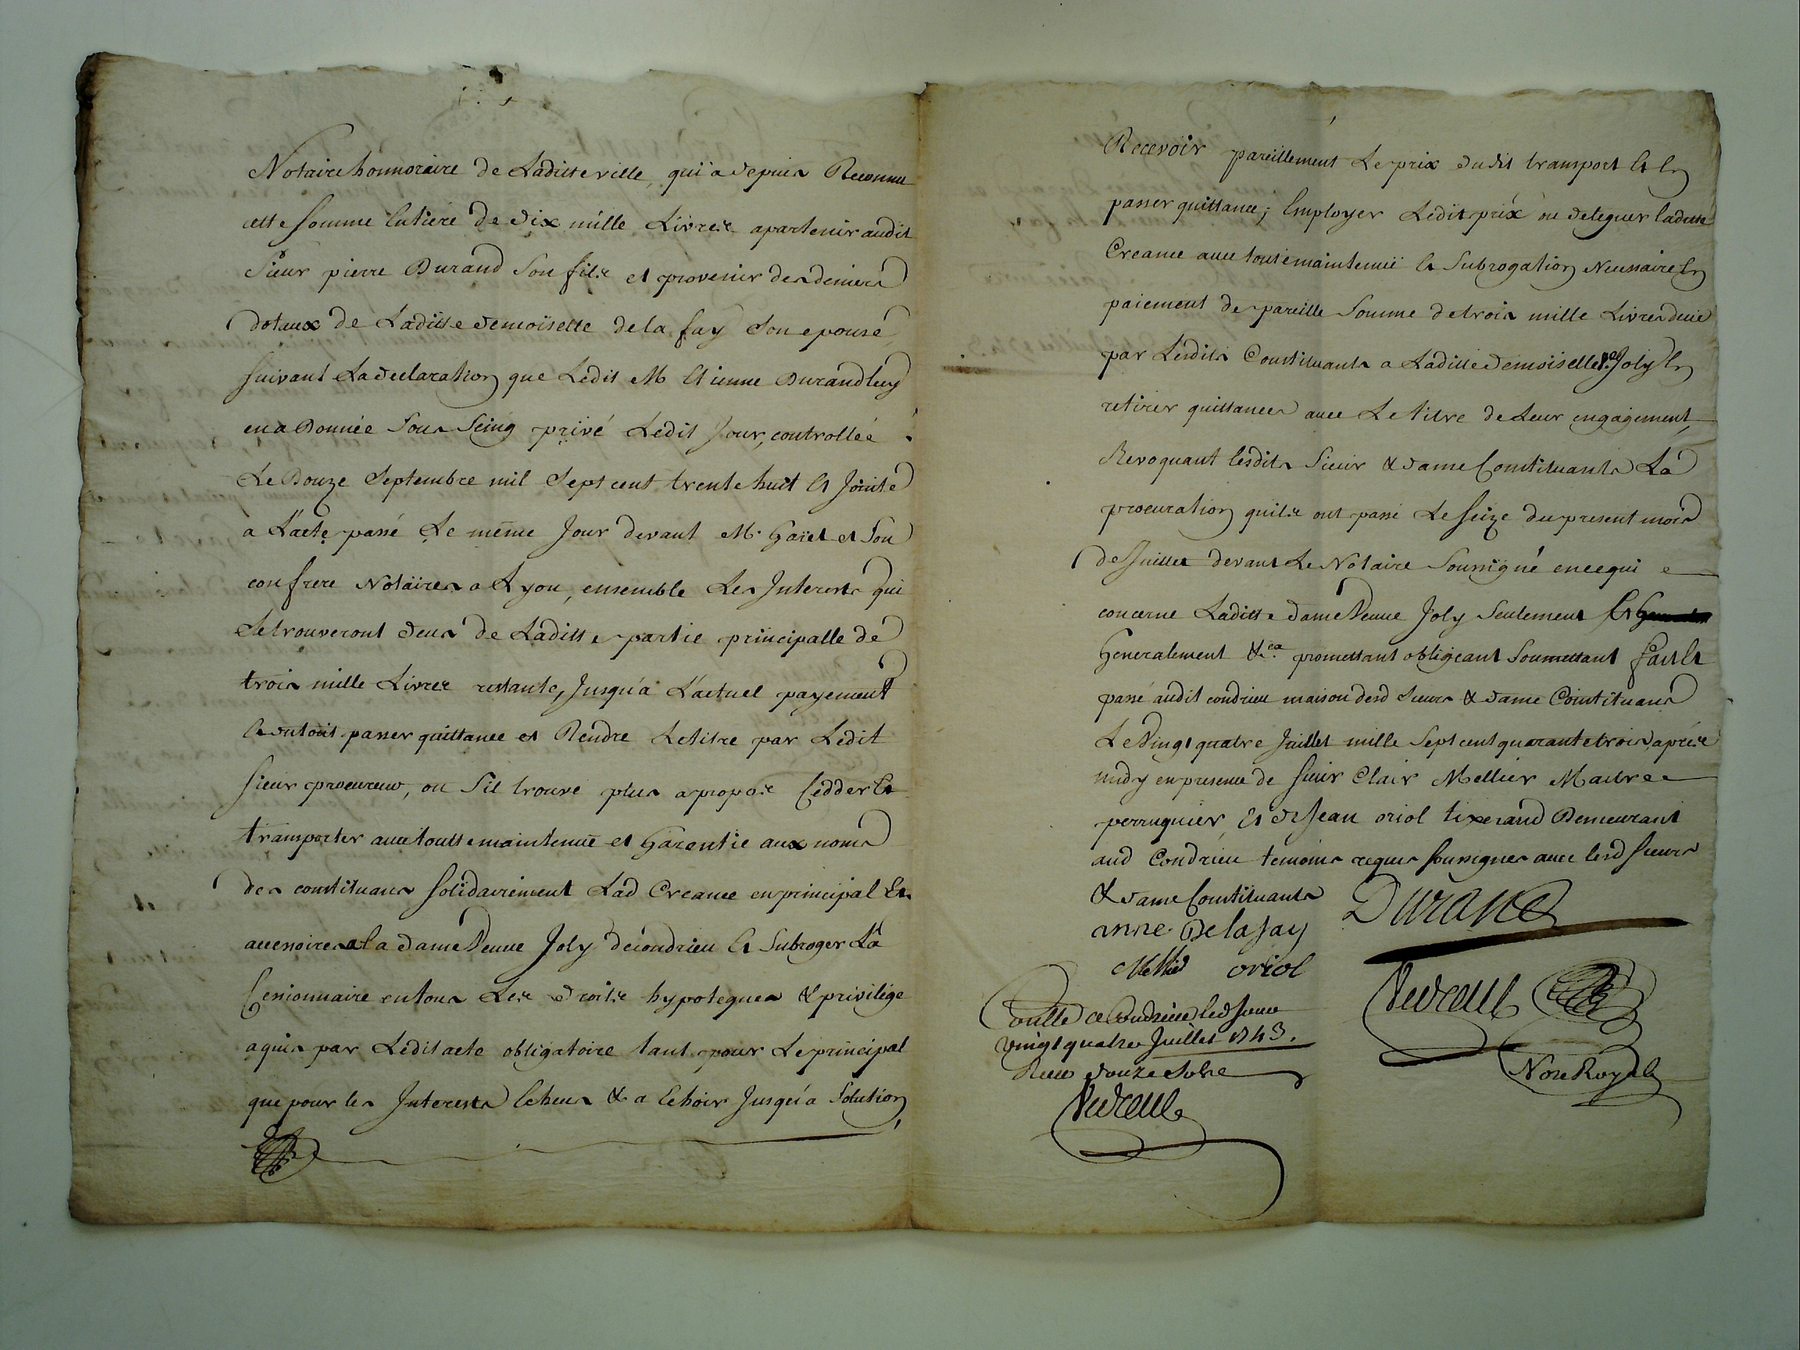 Notaire honnoraire de Laditte ville, qui a depuis Reconnu
cette somme Entiere de dix mille Livres apartenir audit
Sieur pierre Durand son fils et provenir des deniers
dotaux de Laditte demoiselle de la fay son epouse,
suivant La declaration que Ledit Me Etienne Durand luy
en a Donnée Sous Seing privé Ledit Jour, controllée
Le Douze Septembre mil Sept cent trente huit Et Jointe
a L'acte passé Le même Jour devant Me Gaiet et Son
confrere Notaires a Lyon, ensemble Les Interests qui
Se trouveront deus de Laditte partie principalle de
trois mille Livres restante, Jusqu'a L'actuel payement
Et du tout passer quittance et Rendre Le titre par Ledit
sieur procureur, ou S'il trouve plus a propos Cedder Et
transporter avec toutte maintenüe et Garentie aux noms
des constituans solidairement Lad Creance en principal Et
accessoires a la dame Veuve Joly de condrieu Et Subroger La
Cessionnaire en tous Les droits hypoteques & privilege
aquis par Ledit acte obligatoire tant pour Le principal
que pour les Interests Echeus & a Echoir Jusqu'a Solution
Recevoir pareillement Le prix dudit transport Et En
passer quittance; Employer Ledit prix ou deleguer laditte
Creance avec toute maintenüe Et Subrogation Necessaire En
paiement de pareille Somme de trois mille Livres deüe
par Lesdits Constituants a Laditte demoiselle Joly En
retirer quittance avec Le titre de Leur engagement,
Revoquant lesdits Sieur & dame Constituants La
procuration qu'ils ont passé Le seize du present mois
de Juillet devant Le Notaire Soussigné en ce qui
concerne Laditte dame Veuve Joly Seulement Et
Generalement &ca promettant obligeant Soumettant fait Et
passé audit condrieu maison desd Sieurs & dame Constituans
Le Vingt quatre Juillet mille Sept cent quarante trois après
midy en presence de sieur Clair Mellier Maitre
perruquier, Et de Jean oriol tixerand Demeurant
aud Condrieu temoins requis soussignes avec lesd Sieurs
& dame Constituants
Durand
anne Delafay
Mellier oriol
Conllé a Condrieu led Jour
vingt quatre Juillet 1743.
Reçu douze Sols
Nore Royal